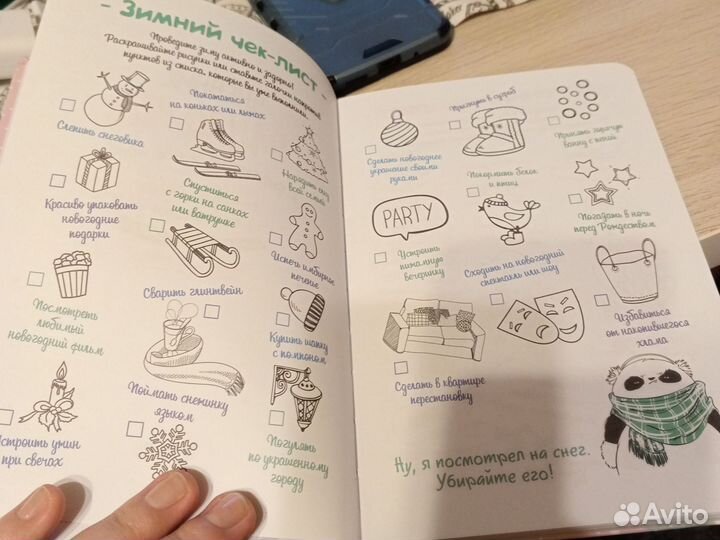 - Зимний чек-лист -
Проведите зиму активно и задорно!
Раскрашивайте рисунки или ставьте галочки напротив
пунктов из списка, которые вы уже выполнили.
Слепить снеговика
Покататься
на коньках или лыжах
Нарядить ёлку
всей семьёй
Красиво упаковать
новогодние
подарки
Спуститься
с горки на санках
или ватрушке
Испечь имбирное
печенье
Посмотреть
любимый
новогодний фильм
Сварить глинтвейн
Купить шапку
с помпоном
Устроить ужин
при свечах
Поймать снежинку
языком
Погулять
по украшенному
городу
Сделать новогоднее
украшение своими
руками
Прыгнуть в сугроб
Принять горячую
ванну с пеной
PARTY
Устроить
пижамную
вечеринку
Покормить белок
и птиц
Погадать в ночь
перед Рождеством
Сходить на новогодний
спектакль или шоу
Избавиться
от накопившегося
хлама
Сделать в квартире
перестановку
Ну, я посмотрел на снег.
Убирайте его!
Avito